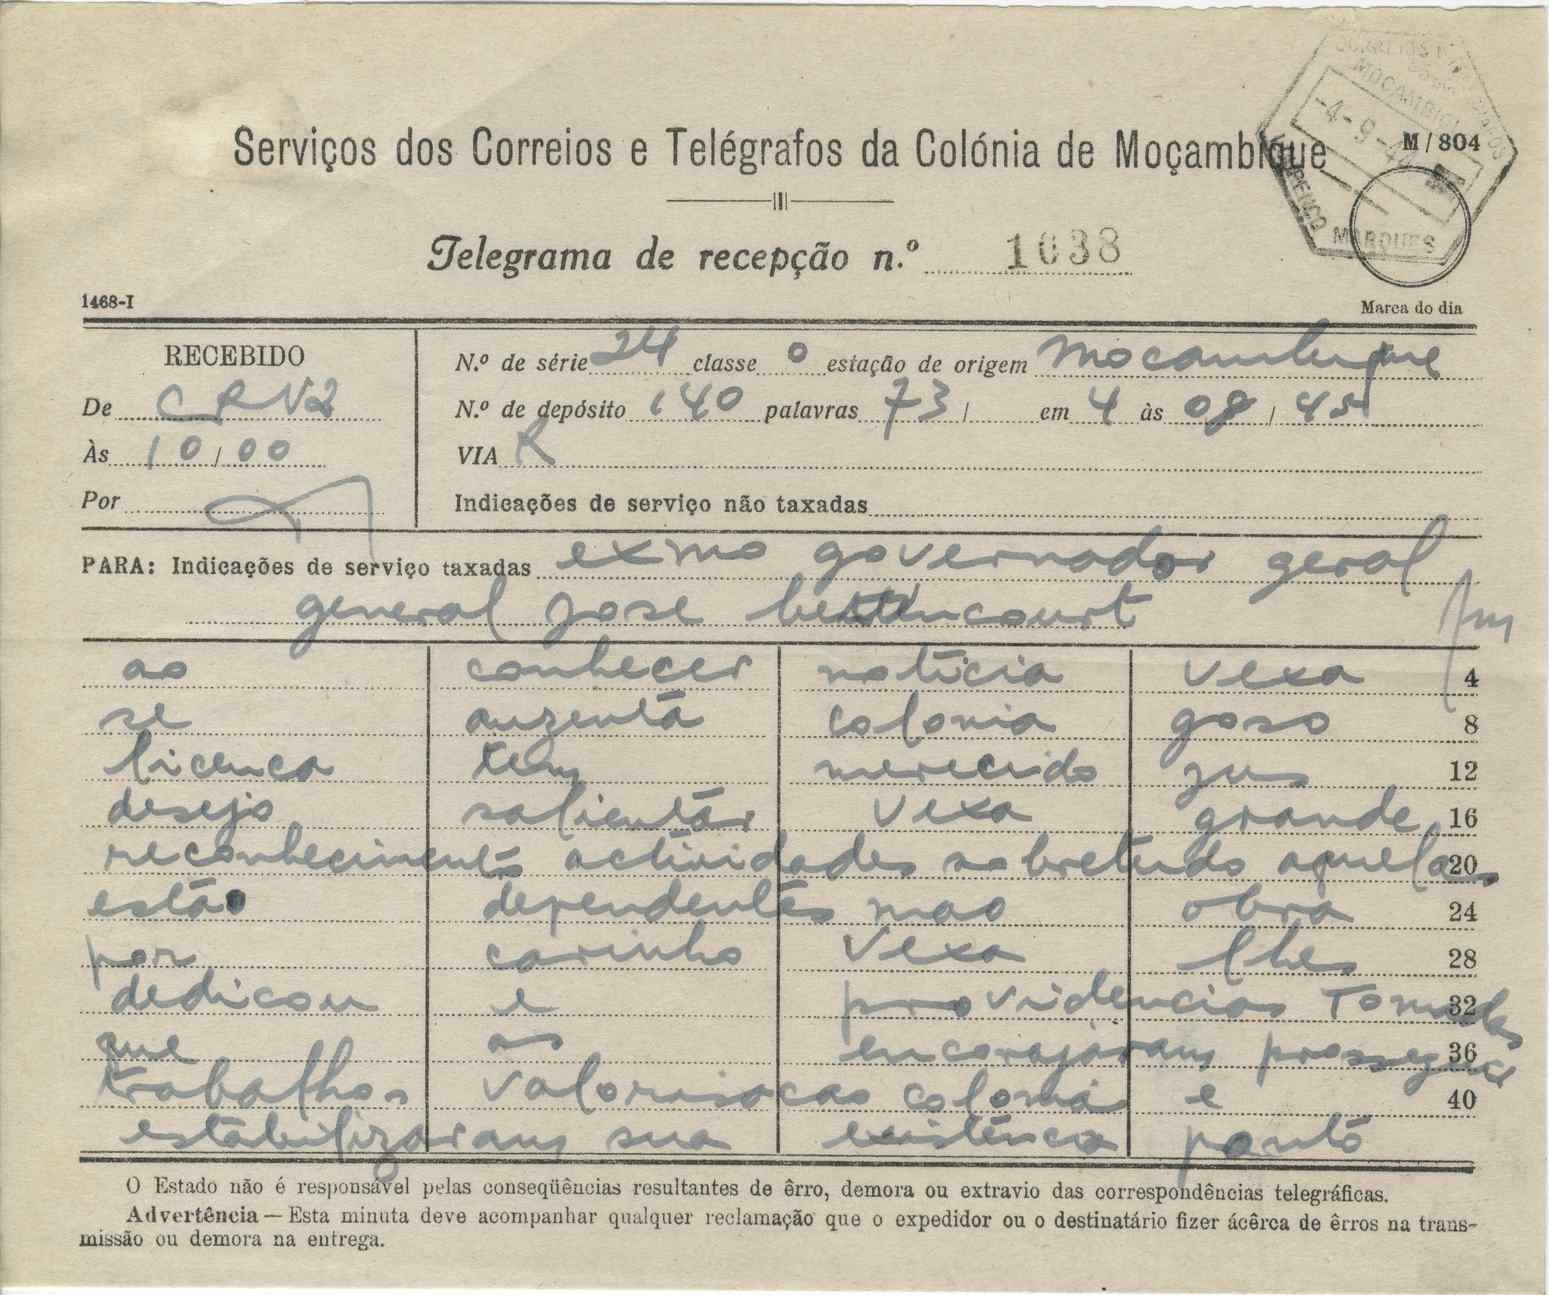 CORREIOS
MOÇAMBIQUE
-4-9-4
LOURENÇO MARQUES
M/804
Serviços dos Correios e Telégrafos da Colónia de Moçambique
Telegrama de recepção n.º 1038
1468-I
Marca do dia
RECEBIDO
De CRV2
Às 10/00
Por
N.º de série 24 classe o estação de origem mocambique
N.º de depósito 140 palavras 73/ em 4 às 08/45
VIA R
Indicações de serviço não taxadas
PARA: Indicações de serviço taxadas exmo governador geral
general jose bettencourt
ao conhecer noticia vexa 4
se auzenta colonia goso 8
licenca tem merecido jus 12
desejo salientar vexa grande 16
reconhecimento actividades sobretudo aquelas 20
estão dependentes mao obra 24
por carinho vexa lhes 28
dedicou e providencias Tomadas 32
que as encorajaram prossegue 36
trabalhos valorisacao colonia e 40
estabilizaram sua existencia ponto
O Estado não é responsável pelas conseqüências resultantes de êrro, demora ou extravio das correspondências telegráficas.
Advertência — Esta minuta deve acompanhar qualquer reclamação que o expedidor ou o destinatário fizer ácêrca de êrros na trans-
missão ou demora na entrega.